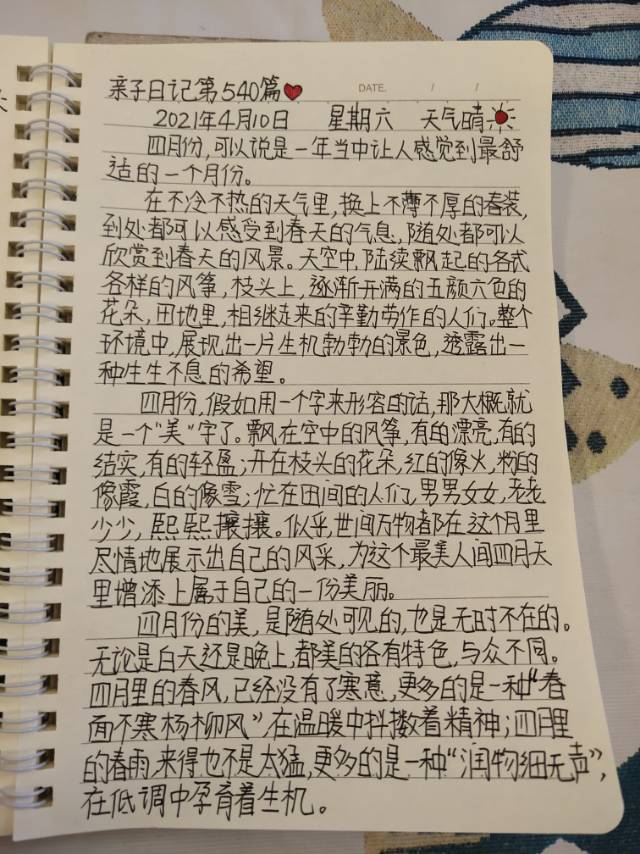 亲子日记第540篇
DATE. / /
2021年4月10日 星期六 天气晴
四月份,可以说是一年当中让人感觉到最舒
适的一个月份。
在不冷不热的天气里,换上不薄不厚的春装,
到处都可以感受到春天的气息,随处都可以
欣赏到春天的风景。天空中,陆续飘起的各式
各样的风筝,枝头上,逐渐开满的五颜六色的
花朵,田地里,相继走来的辛勤劳作的人们。整个
环境中,展现出一片生机勃勃的景色,透露出一
种生生不息的希望。
四月份,假如用一个字来形容的话,那大概就
是一个“美”字了。飘在空中的风筝,有的漂亮,有的
结实,有的轻盈;开在枝头的花朵,红的像火,粉的
像霞,白的像雪;忙在田间的人们,男男女女,老老
少少,熙熙攘攘。似乎,世间万物都在这个月里
尽情地展示出自己的风采,为这个最美人间四月天
里增添上属于自己的一份美丽。
四月份的美,是随处可见的,也是无时不在的。
无论是白天还是晚上,都美的各有特色,与众不同。
四月里的春风,已经没有了寒意,更多的是一种“春
面不寒杨柳风”,在温暖中抖擞着精神;四月里
的春雨,来得也不是太猛,更多的是一种“润物细无声”,
在低调中孕育着生机。